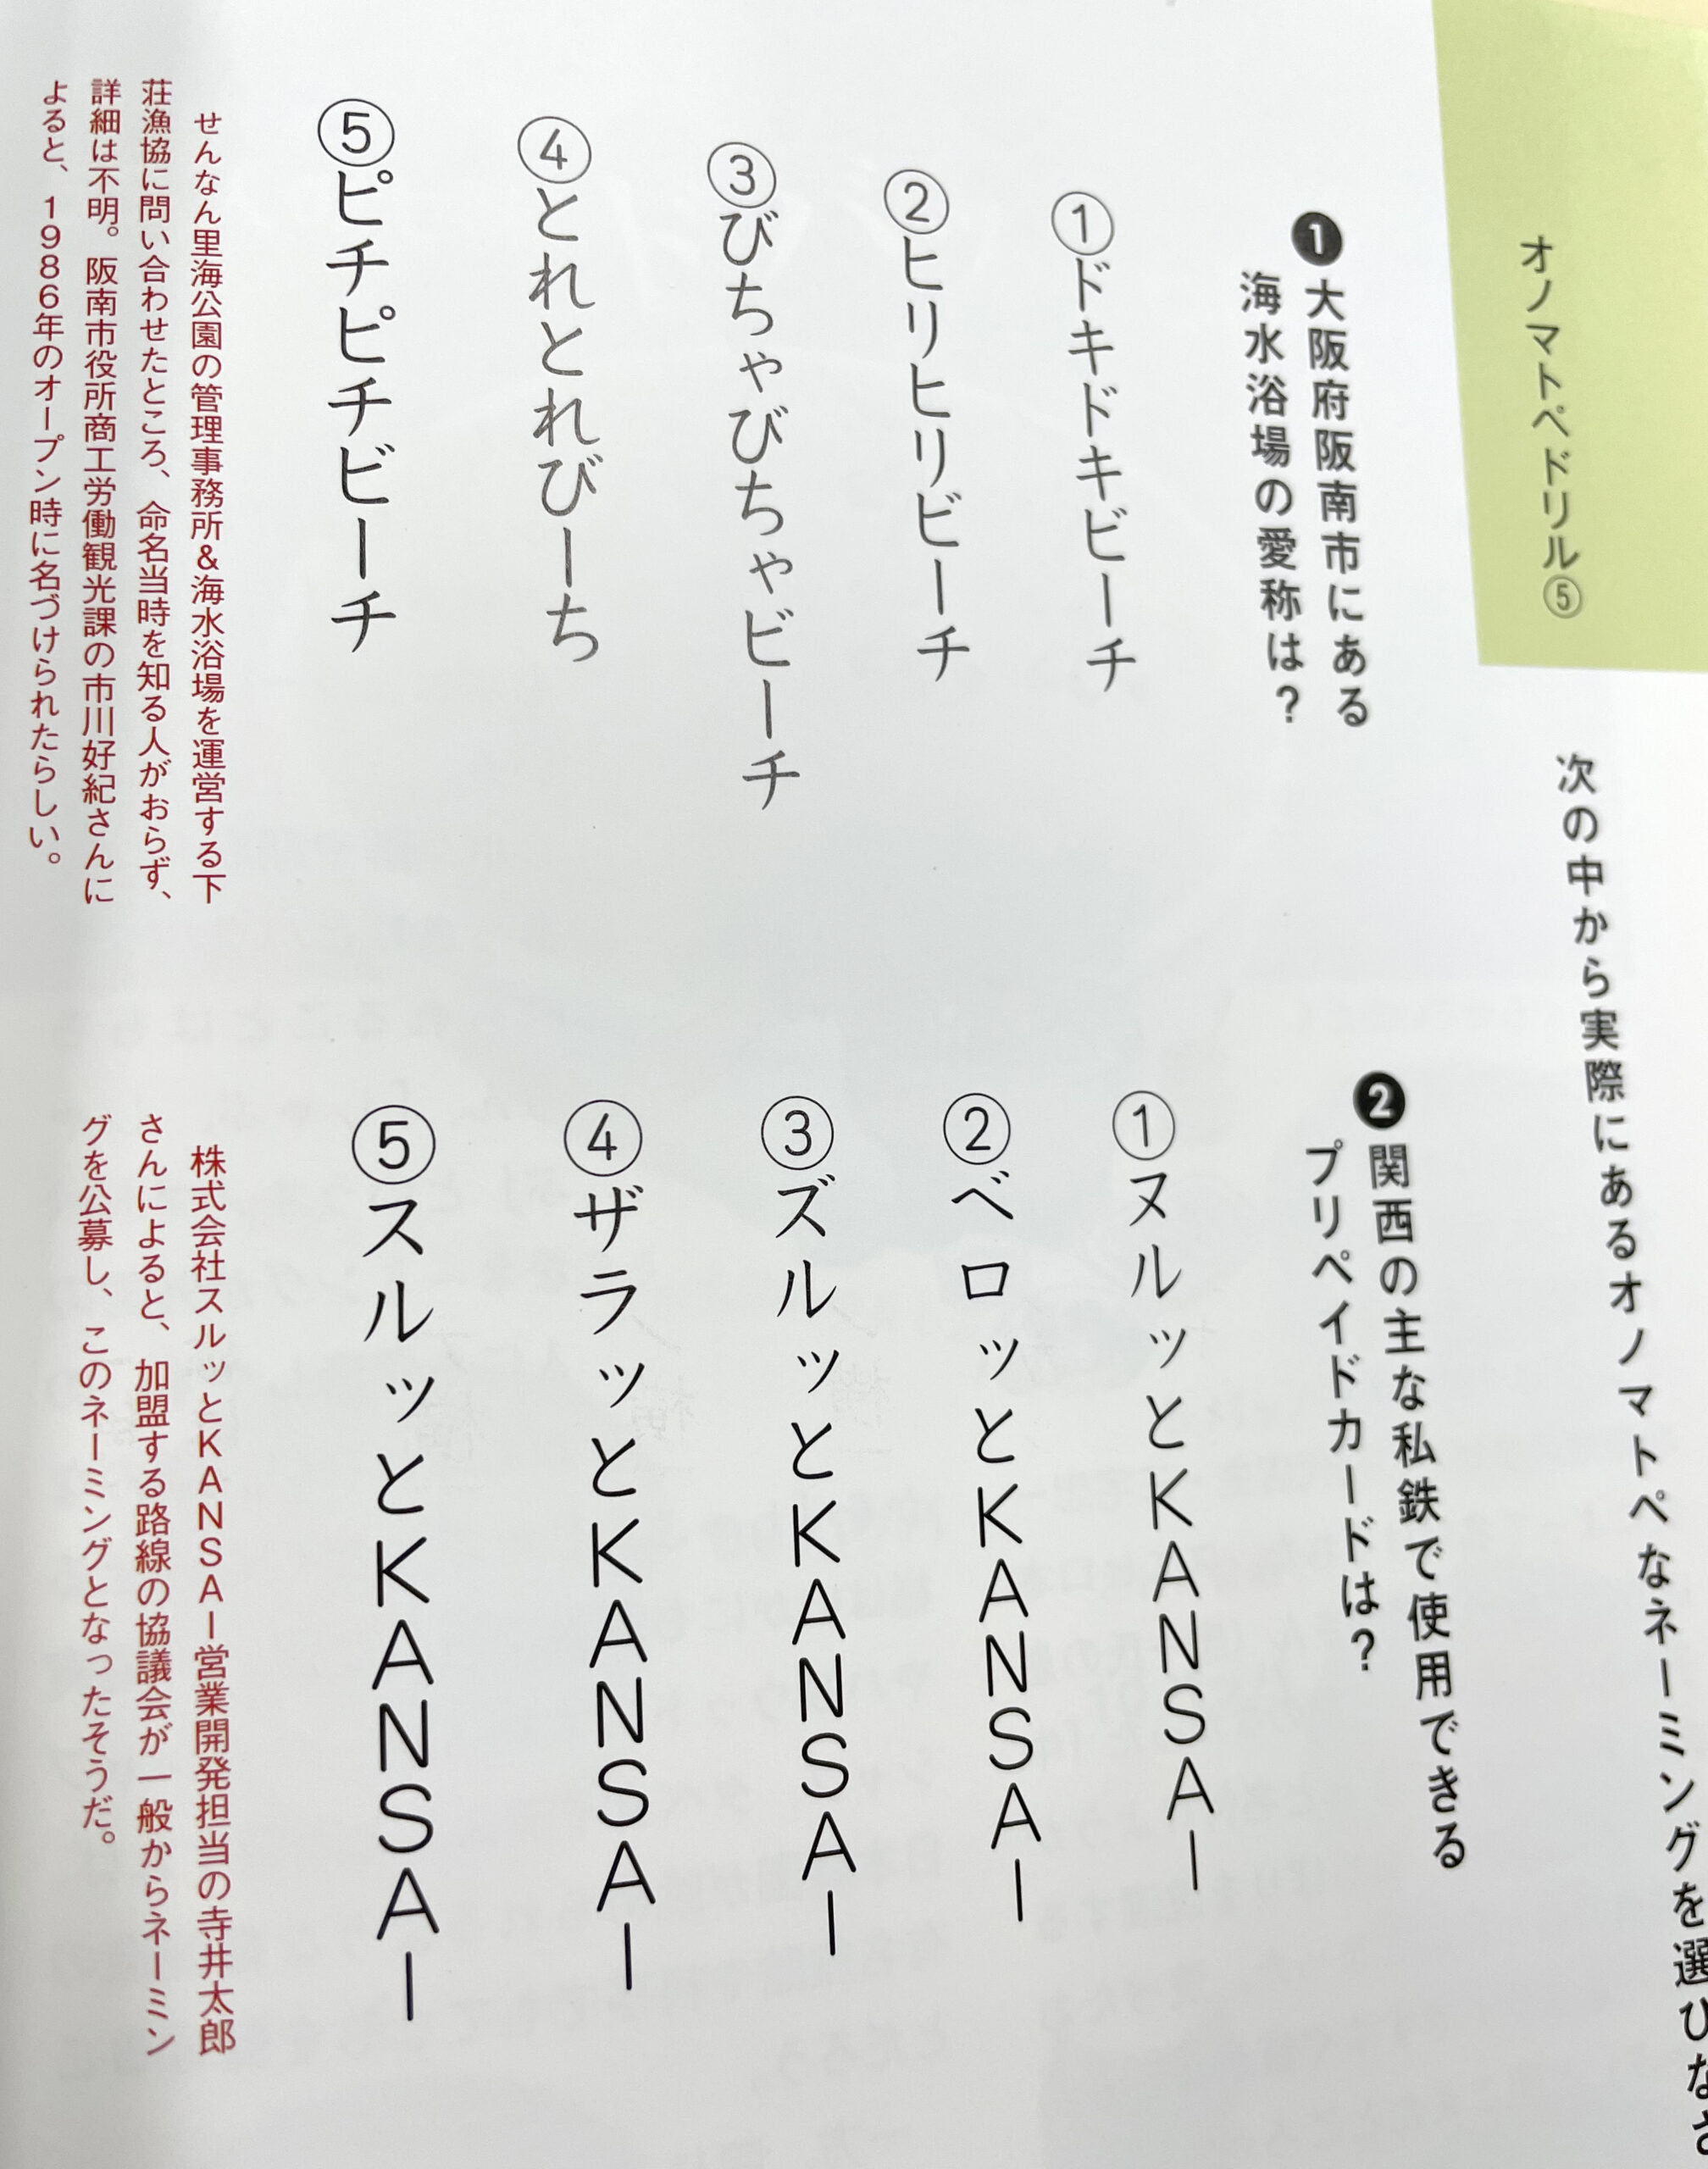 オノマトペドリル⑤
次の中から実際にあるオノマトペなネーミングを選びなさ
❶大阪府阪南市にある
海水浴場の愛称は？
①ドキドキビーチ
②ヒリヒリビーチ
③びちゃびちゃビーチ
④とれとれびーち
⑤ピチピチビーチ
せんなん里海公園の管理事務所&海水浴場を運営する下
荘漁協に問い合わせたところ、命名当時を知る人がおらず、
詳細は不明。阪南市役所商工労働観光課の市川好紀さんに
よると、1986年のオープン時に名づけられたらしい。
❷関西の主な私鉄で使用できる
プリペイドカードは？
①ヌルッとKANSAI
②ベロッとKANSAI
③ズルッとKANSAI
④ザラッとKANSAI
⑤スルッとKANSAI
株式会社スルッとKANSAI営業開発担当の寺井太郎
さんによると、加盟する路線の協議会が一般からネーミン
グを公募し、このネーミングとなったそうだ。